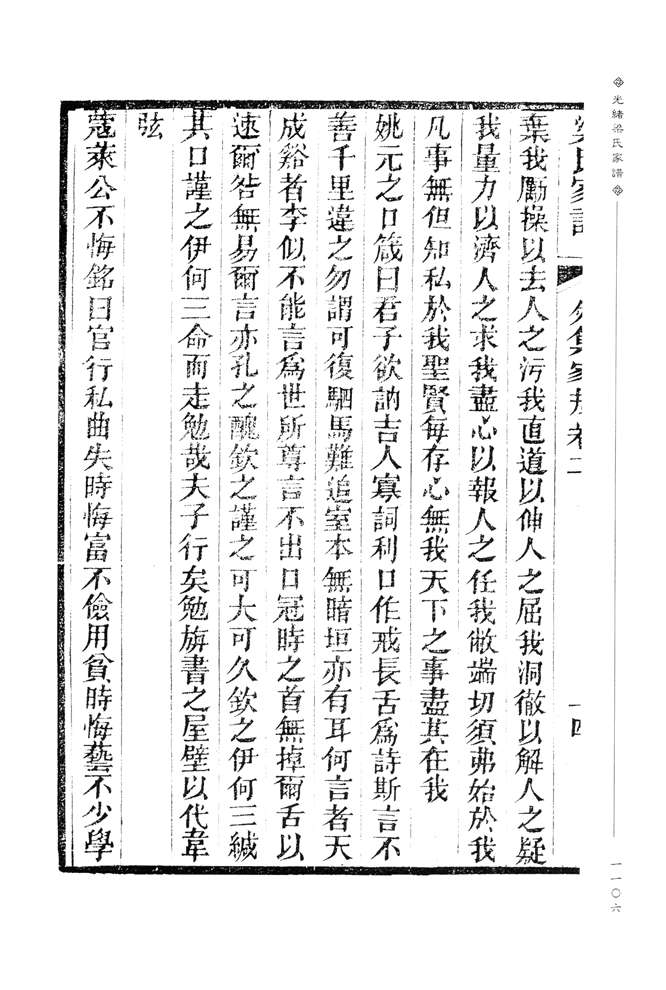 光緒梁氏家譜
一一〇六
梁氏家譜 外集家規卷二 十四
棄我勵操以去人之污我直道以伸人之屈我洞徹以解人之疑
我量力以濟人之求我盡心以報人之任我敝端切須弗始於我
凡事無但知私於我聖賢每存心無我天下之事盡其在我
姚元之口箴曰君子欲訥吉人寡詞利口作戒長舌爲詩斯言不
善千里違之勿謂可復駟馬難追室本無暗垣亦有耳何言者天
成谿者李似不能言爲世所尊言不出口冠時之首無掉爾舌以
速爾咎無易爾言亦孔之醜欽之謹之可大可久欽之伊何三緘
其口謹之伊何三命而走勉哉夫子行矣勉旃書之屋壁以代韋
弦
蔻萊公不悔銘曰官行私曲失時悔富不儉用貧時悔藝不少學